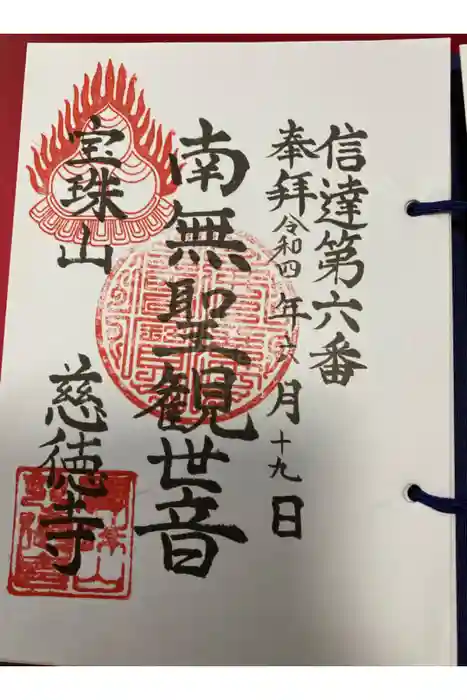 信達第六番
奉拝令和四年六月十九日
南無聖観世音
宝珠山
慈徳寺